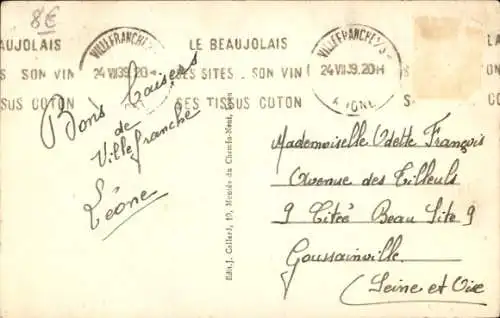 8€
BEAUJOLAIS
SON VIN
TISSUS COTON
VILLEFRANCHE
24 VII 39. 20
LE BEAUJOLAIS
SES SITES . SON VIN
SES TISSUS COTON
VILLEFRANCHE S/S
24 VII 39. 20H
RHONE
LA
S
Bons baisers
de
Villefranche
Léone
Edit. J. Cellard, 19, Montée du Chemin-Neuf, Lyon
Mademoiselle Odette François
Avenue des Tilleuls
9 Citée Beau Site 9
Goussainville
(Seine et Oise